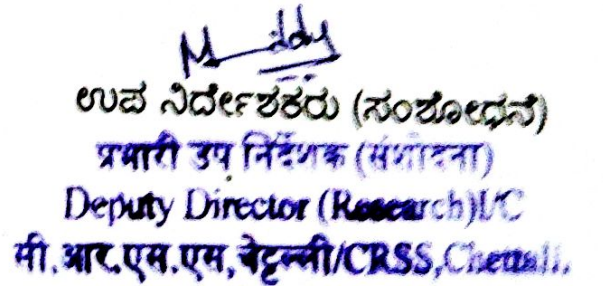 ಉಪ ನಿರ್ದೇಶಕರು (ಸಂಶೋಧನೆ)
प्रभारी उप निर्देशक (संशोदना)
Deputy Director (Research)I/C
सी.आर.एस.एस,चेट्टल्ली/CRSS,Chettalli.